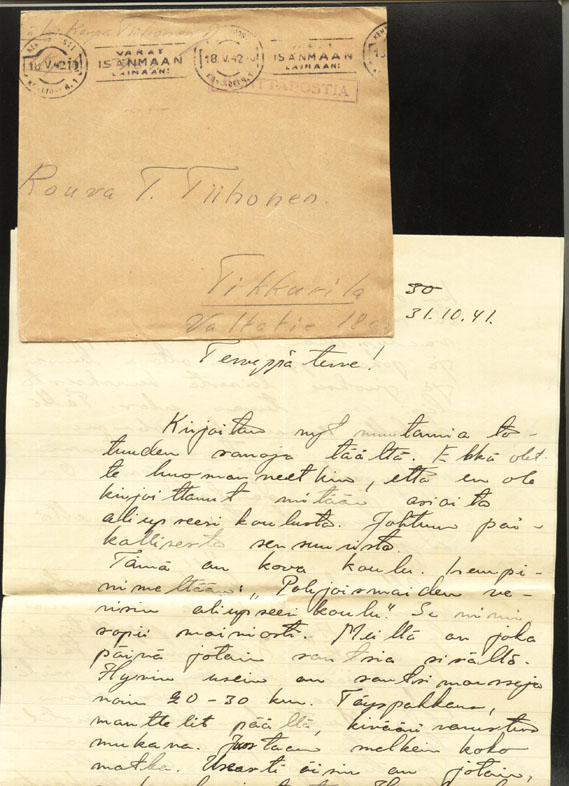 Korpr. Tiihonen
18.V.42
VARAT
ISÄNMAAN
LAINAAN!
18.V.42
ISÄNMAAN
LAINAAN!
KENTTÄPOSTIA
Rouva T. Tiihonen.
Tikkurila
Valtatie 18
30
31.10.41.
Terveppä terve!
Kirjoitan nyt muutamia to-
tuuden sanoja täältä. Ehkä olet-
te huomanneetkin, että en ole
kirjoittanut mitään asioita
aliupseerikoulusta. Johtuu pai-
kallisesta sensuurista.
Tämä on kova koulu. Lempi-
nimeltään: "Pohjoismaiden ve-
risin aliupseerikoulu". Se nimi
sopii mainiosti. Meillä on joka
päivä jotain santsia sisältä.
Hyvin usein on santsimarsseja
noin 20-30 km. Täyspakkaus,
manttelit päällä, kivääri varustus
mukana. Juostaan melkein koko
matka. Useasti öisin on jotain,